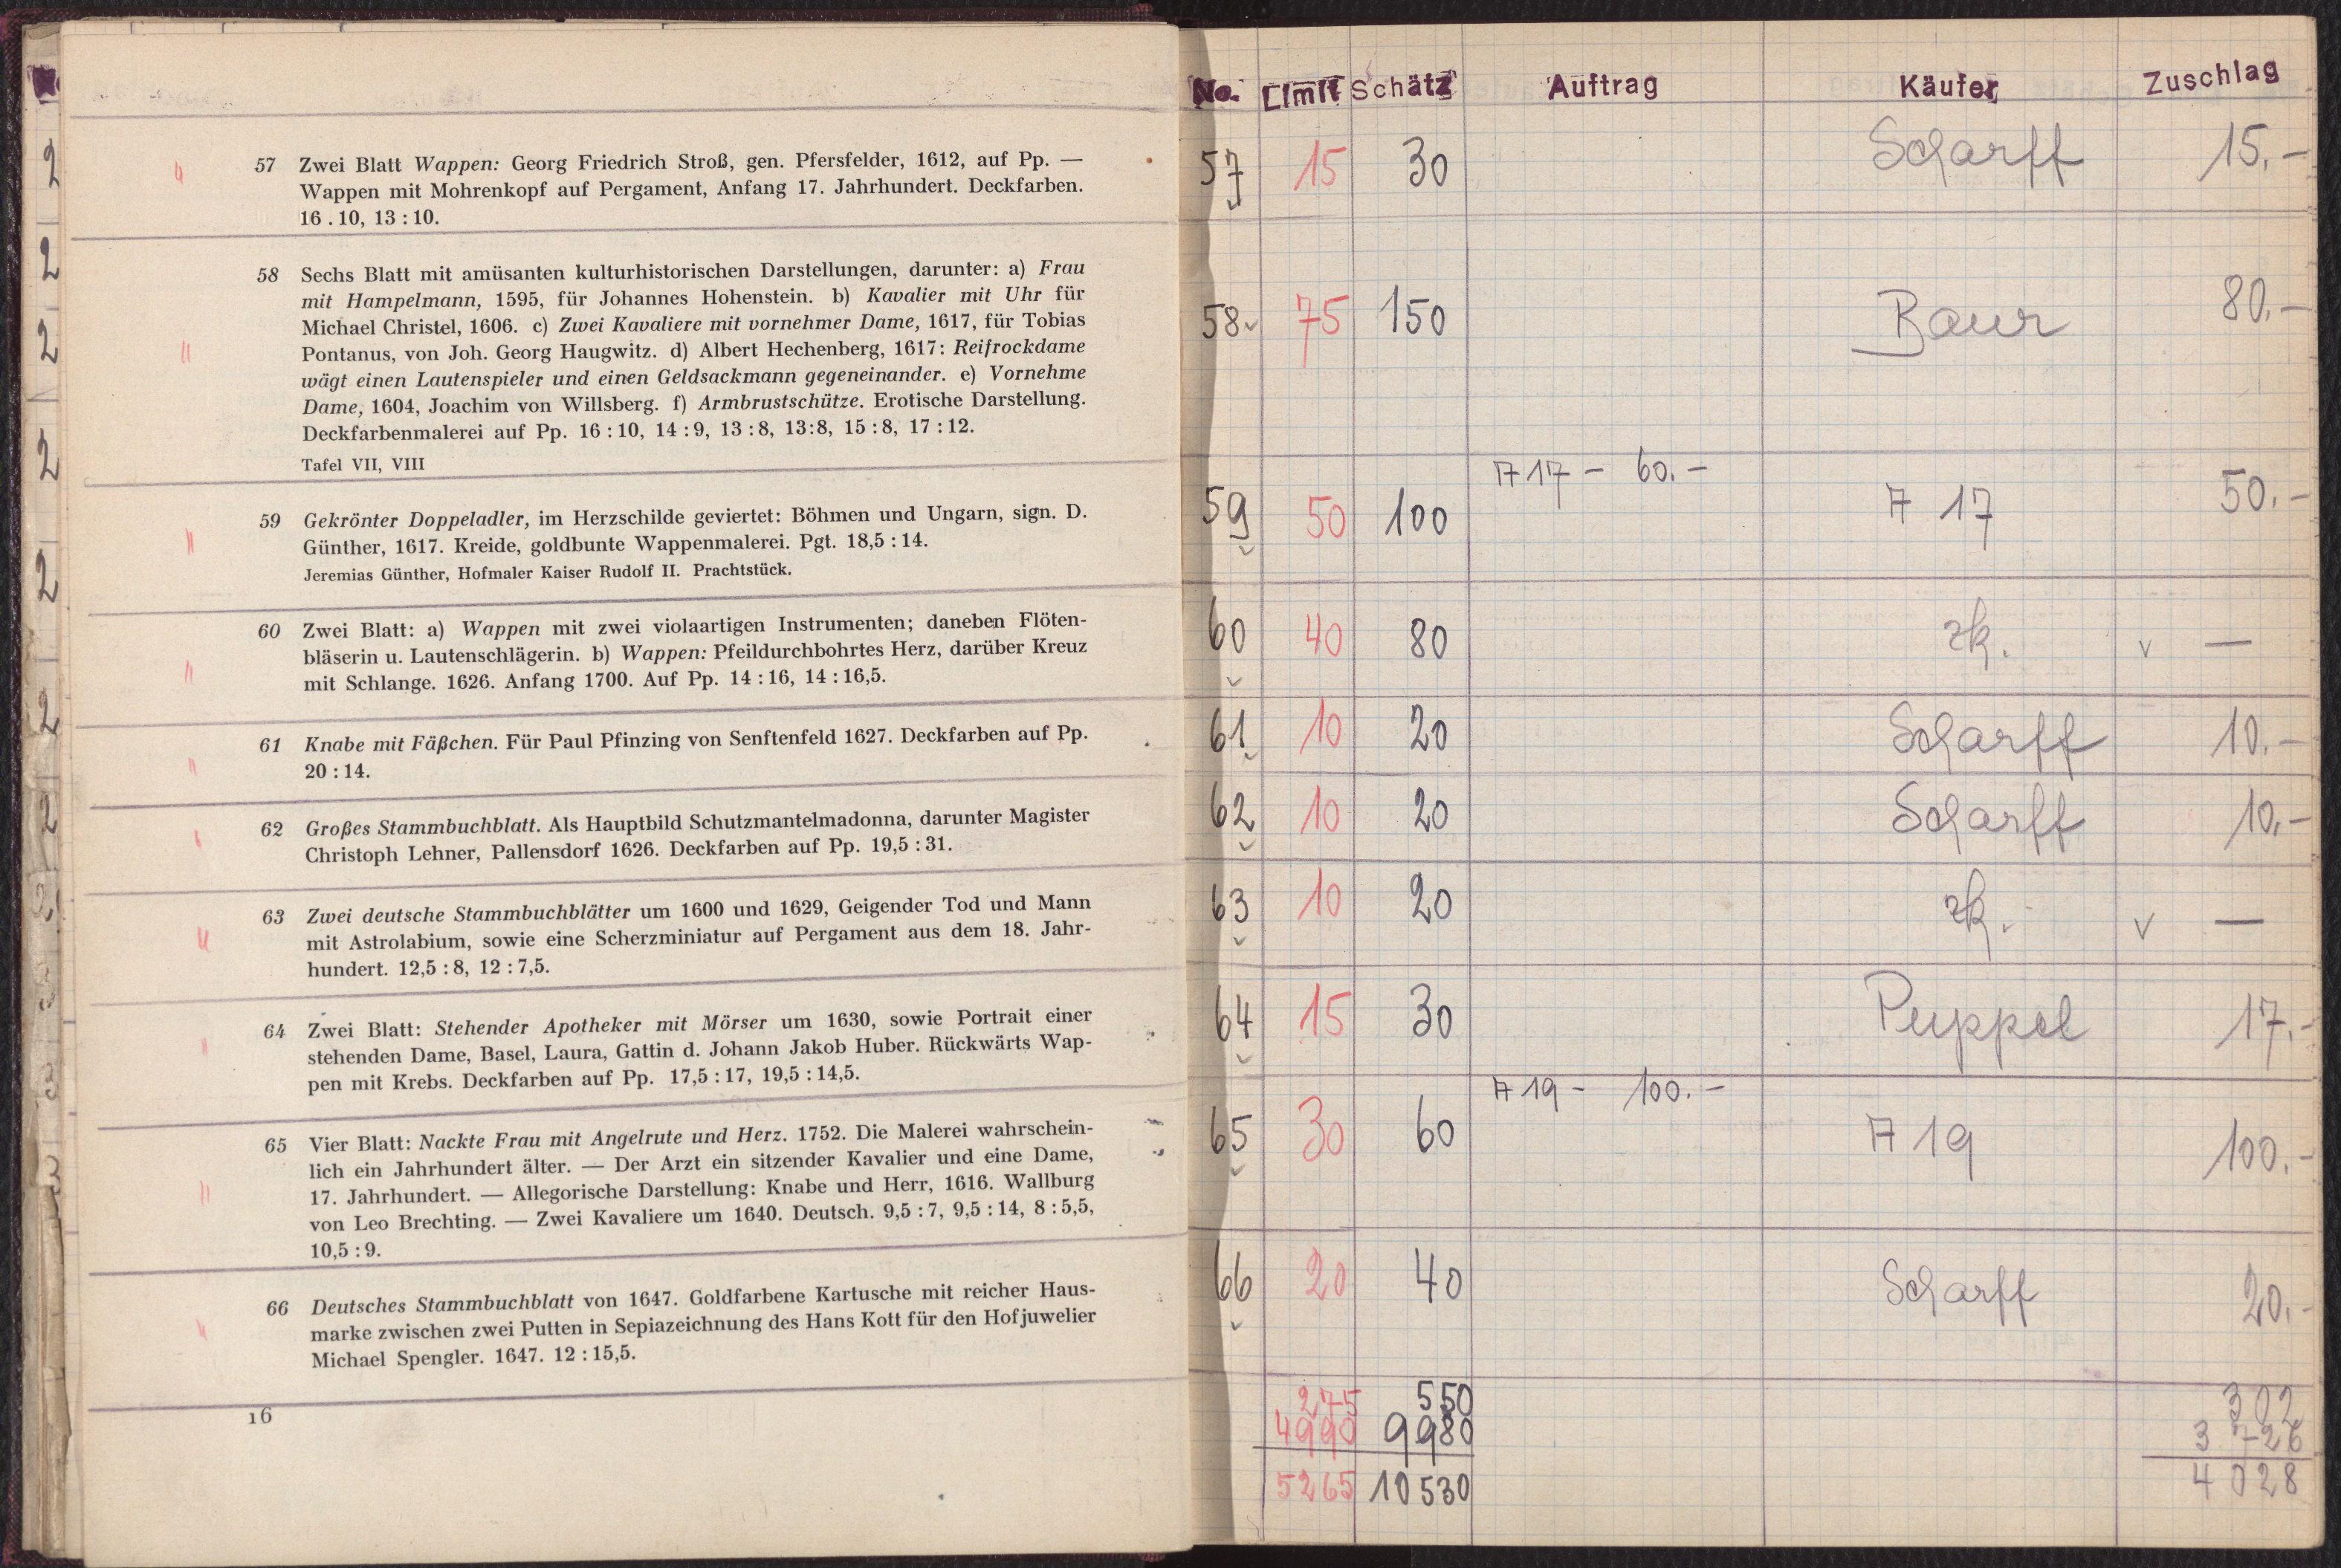 57 Zwei Blatt Wappen: Georg Friedrich Stroß, gen. Pfersfelder, 1612, auf Pp. —
Wappen mit Mohrenkopf auf Pergament, Anfang 17. Jahrhundert. Deckfarben.
16 . 10, 13 : 10.
58 Sechs Blatt mit amüsanten kulturhistorischen Darstellungen, darunter: a) Frau
mit Hampelmann, 1595, für Johannes Hohenstein. b) Kavalier mit Uhr für
Michael Christel, 1606. c) Zwei Kavaliere mit vornehmer Dame, 1617, für Tobias
Pontanus, von Joh. Georg Haugwitz. d) Albert Hechenberg, 1617: Reifrockdame
wägt einen Lautenspieler und einen Geldsackmann gegeneinander. e) Vornehme
Dame, 1604, Joachim von Willsberg. f) Armbrustschütze. Erotische Darstellung.
Deckfarbenmalerei auf Pp. 16 : 10, 14 : 9, 13 : 8, 13:8, 15 : 8, 17 : 12.
Tafel VII, VIII
59 Gekrönter Doppeladler, im Herzschilde geviertet: Böhmen und Ungarn, sign. D.
Günther, 1617. Kreide, goldbunte Wappenmalerei. Pgt. 18,5 : 14.
Jeremias Günther, Hofmaler Kaiser Rudolf II. Prachtstück.
60 Zwei Blatt: a) Wappen mit zwei violaartigen Instrumenten; daneben Flöten-
bläserin u. Lautenschlägerin. b) Wappen: Pfeildurchbohrtes Herz, darüber Kreuz
mit Schlange. 1626. Anfang 1700. Auf Pp. 14 : 16, 14 : 16,5.
61 Knabe mit Fäßchen. Für Paul Pfinzing von Senftenfeld 1627. Deckfarben auf Pp.
20 : 14.
62 Großes Stammbuchblatt. Als Hauptbild Schutzmantelmadonna, darunter Magister
Christoph Lehner, Pallensdorf 1626. Deckfarben auf Pp. 19,5 : 31.
63 Zwei deutsche Stammbuchblätter um 1600 und 1629, Geigender Tod und Mann
mit Astrolabium, sowie eine Scherzminiatur auf Pergament aus dem 18. Jahr-
hundert. 12,5 : 8, 12 : 7,5.
64 Zwei Blatt: Stehender Apotheker mit Mörser um 1630, sowie Portrait einer
stehenden Dame, Basel, Laura, Gattin d. Johann Jakob Huber. Rückwärts Wap-
pen mit Krebs. Deckfarben auf Pp. 17,5 : 17, 19,5 : 14,5.
65 Vier Blatt: Nackte Frau mit Angelrute und Herz. 1752. Die Malerei wahrschein-
lich ein Jahrhundert älter. — Der Arzt ein sitzender Kavalier und eine Dame,
17. Jahrhundert. — Allegorische Darstellung: Knabe und Herr, 1616. Wallburg
von Leo Brechting. — Zwei Kavaliere um 1640. Deutsch. 9,5 : 7, 9,5 : 14, 8 : 5,5,
10,5 : 9.
66 Deutsches Stammbuchblatt von 1647. Goldfarbene Kartusche mit reicher Haus-
marke zwischen zwei Putten in Sepiazeichnung des Hans Kott für den Hofjuwelier
Michael Spengler. 1647. 12 : 15,5.
16
No. Limit Schätz Auftrag Käufer Zuschlag
57 15 30 Scharff 15.-
58 75 150 Baur 80.-
A 17 - 60.-
59 50 100 A 17 50.-
60 40 80 zk. v —
61 10 20 Scharff 10.-
62 10 20 Scharff 10.-
63 10 20 zk. v —
64 15 30 Puppel 17.-
A 19 - 100.-
65 30 60 A 19 100.-
66 20 40 Scharff 20.-
275 550 302
4990 9980 3 726
5265 10530 4 028